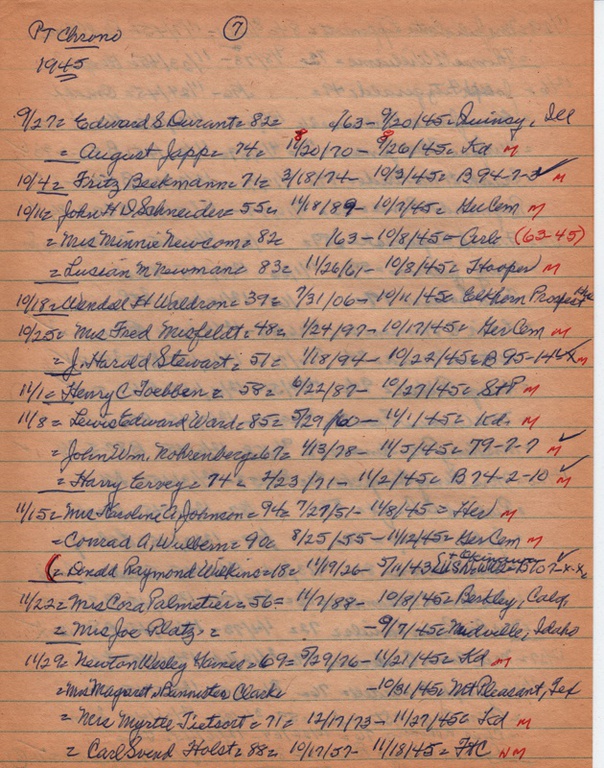 PT Chrono 7
1945
9/27 = Edward S Durant = 82 = /63 - 9/20/45 = Quincy, Ill
= August Japp = 74 = 11/20/70 - 9/26/45 = Kd M
10/4 = Fritz Beekmann = 71 = 3/18/74 - 10/3/45 = B 94-7-3 ✓ M
10/11 = John H D Schneider = 55 = 11/18/89 - 10/7/45 = Ger Cem M
= Mrs Minnie Newcom = 82 = /63 - 10/8/45 = (63-45)
= Lusian M Newman = 83 = 11/26/61 - 10/8/45 = Hooper M
10/18 = Wendal H Waldron = 39 = 7/31/06 - 10/11/45 = Elkhorn Prospect
10/25 = Mrs Fred Misfeldt = 48 = 1/24/97 - 10/17/45 = Ger Cem M
= J. Harold Stewart = 51 = 1/18/94 - 10/22/45 = B 95-14 M
11/1 = Henry C Toebben = 58 = 6/22/87 - 10/27/45 = St P M
11/8 = Lewis Edward Ward = 85 = 5/29/60 - 11/1/45 = Kd M
= John Wm. Nohrenberg = 67 = 4/13/78 - 11/5/45 = 79-7-7 ✓ M
= Harry Ervey = 74 = 2/23/71 - 11/2/45 = B 74-2-10 ✓ M
11/15 = Mrs Karoline A Johnson = 94 = 7/27/51 - 11/8/45 = Her M
= Conrad A, Wulbern = 90 = 8/25/55 - 11/12/45 = Ger Cem M
( = Donald Raymond Wilkins = 18 = 11/19/26 - 5/11/43
11/22 = Mrs Cora Palmetier = 56 = 11/7/88 - 10/8/45 = Berkley, Calif,
= Mrs Joe Platz = - 9/7/45 = Midville, Idaho
11/29 = Newton Wesley Haines = 69 = 5/29/76 - 11/21/45 = Kd M
= Mrs Magaret Bannister Clark - 10/31/45 = Mt Pleasant, Tex
= Mrs Myrtle Tietsort = 71 = 12/17/73 - 11/27/45 = Kd M
= Carl Svend Holst = 88 = 10/17/57 - 11/18/45 = FtC NM